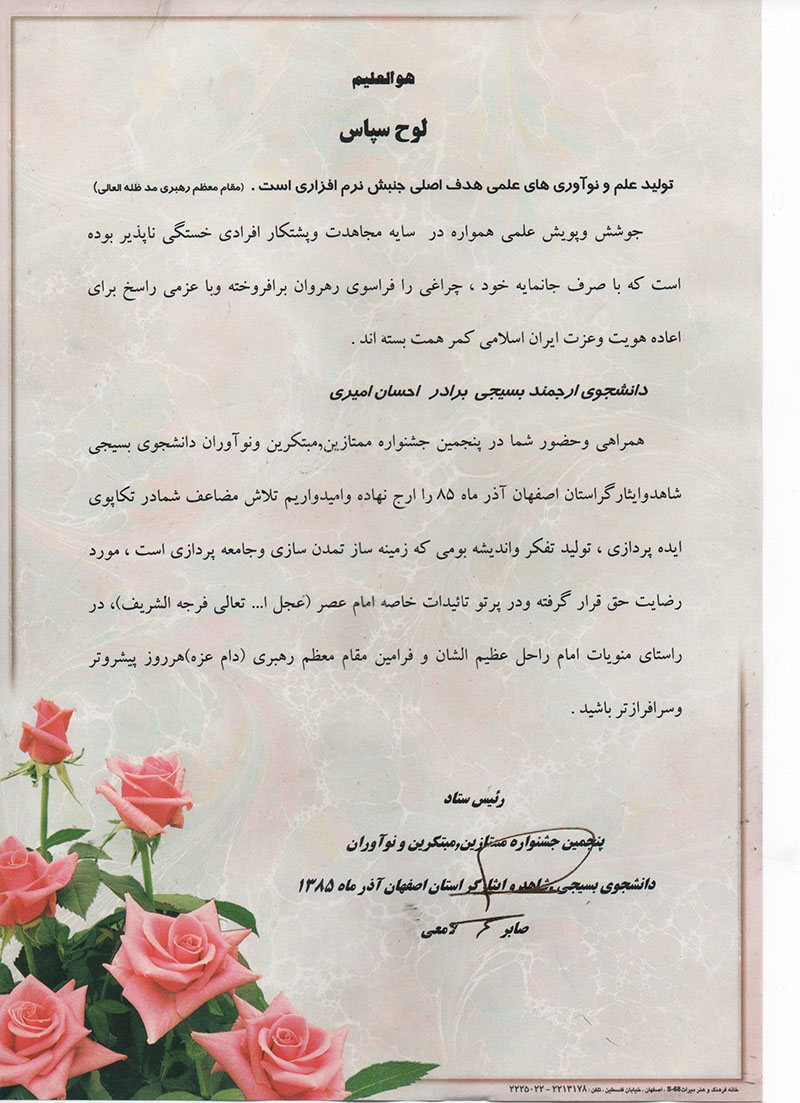 هوالعلیم
لوح سپاس
تولید علم و نوآوری های علمی هدف اصلی جنبش نرم افزاری است . (مقام معظم رهبری مد ظله العالی)
جوشش وپویش علمی همواره در سایه مجاهدت وپشتکار افرادی خستگی ناپذیر بوده
است که با صرف جانمایه خود ، چراغی را فراسوی رهروان برافروخته وبا عزمی راسخ برای
اعاده هویت وعزت ایران اسلامی کمر همت بسته اند .
دانشجوی ارجمند بسیجی برادر احسان امیری
همراهی وحضور شما در پنجمین جشنواره ممتازین,مبتکرین ونوآوران دانشجوی بسیجی
شاهدوایثارگراستان اصفهان آذر ماه ۸۵ را ارج نهاده وامیدواریم تلاش مضاعف شمادر تکاپوی
ایده پردازی ، تولید تفکر واندیشه بومی که زمینه ساز تمدن سازی وجامعه پردازی است ، مورد
رضایت حق قرار گرفته ودر پرتو تائیدات خاصه امام عصر (عجل ا... تعالی فرجه الشریف)، در
راستای منویات امام راحل عظیم الشان و فرامین مقام معظم رهبری (دام عزه)هرروز پیشروتر
وسرافرازتر باشید .
رئیس ستاد
پنجمین جشنواره ممتازین,مبتکرین و نوآوران
دانشجوی بسیجی ,شاهد و ایثارگر استان اصفهان آذر ماه ۱۳۸۵
صابر لامعی
خانه فرهنگ و هنر میراث S-68 ، اصفهان ، خیابان فلسطین ، تلفن : ۲۲۱۳۱۷۸ - ۲۲۲۵۰۲۲